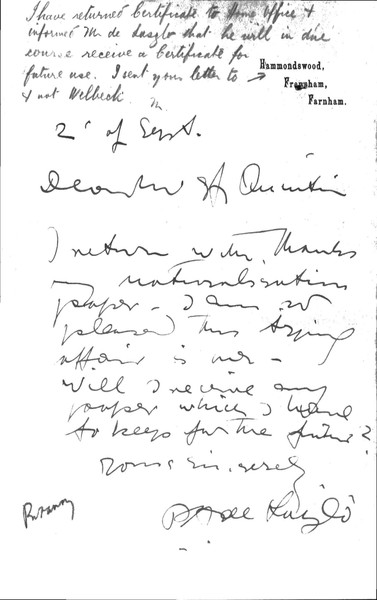 I have returned Certificate to Home Office &
informed Mr de Laszlo that he will in due
course receive a Certificate for
future use. I sent your letter to →
& not Welbeck.
Hammondswood,
Frensham,
Farnham.
2 of Sept.
Dear Mr St Quintin
I return with thanks
my naturalisation
paper - I am so
pleased this trying
affair is over -
Will I receive any
paper which I have
to keep for the future?
Yours sincerely
P A de László